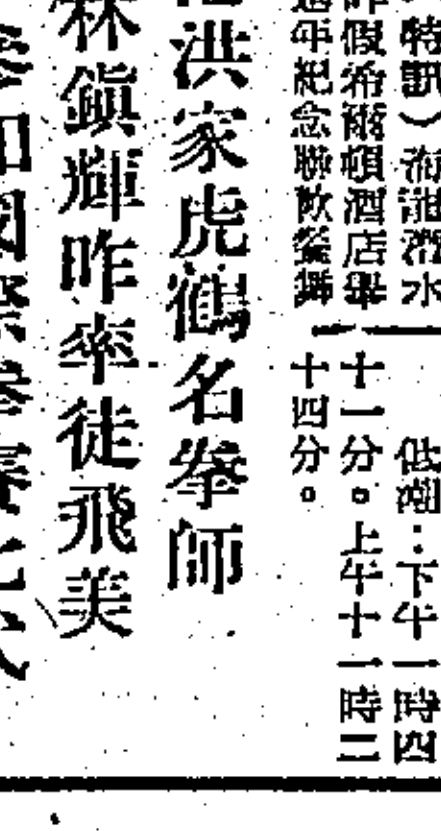 特訊）海龍潛水
昨假希爾頓酒店舉
週年紀念聯歡餐舞
低潮：下午一時四
十一分。上午十一時二
十四分。
洪家虎鶴名拳師
林鎮輝昨率徒飛美
參加國際拳賽